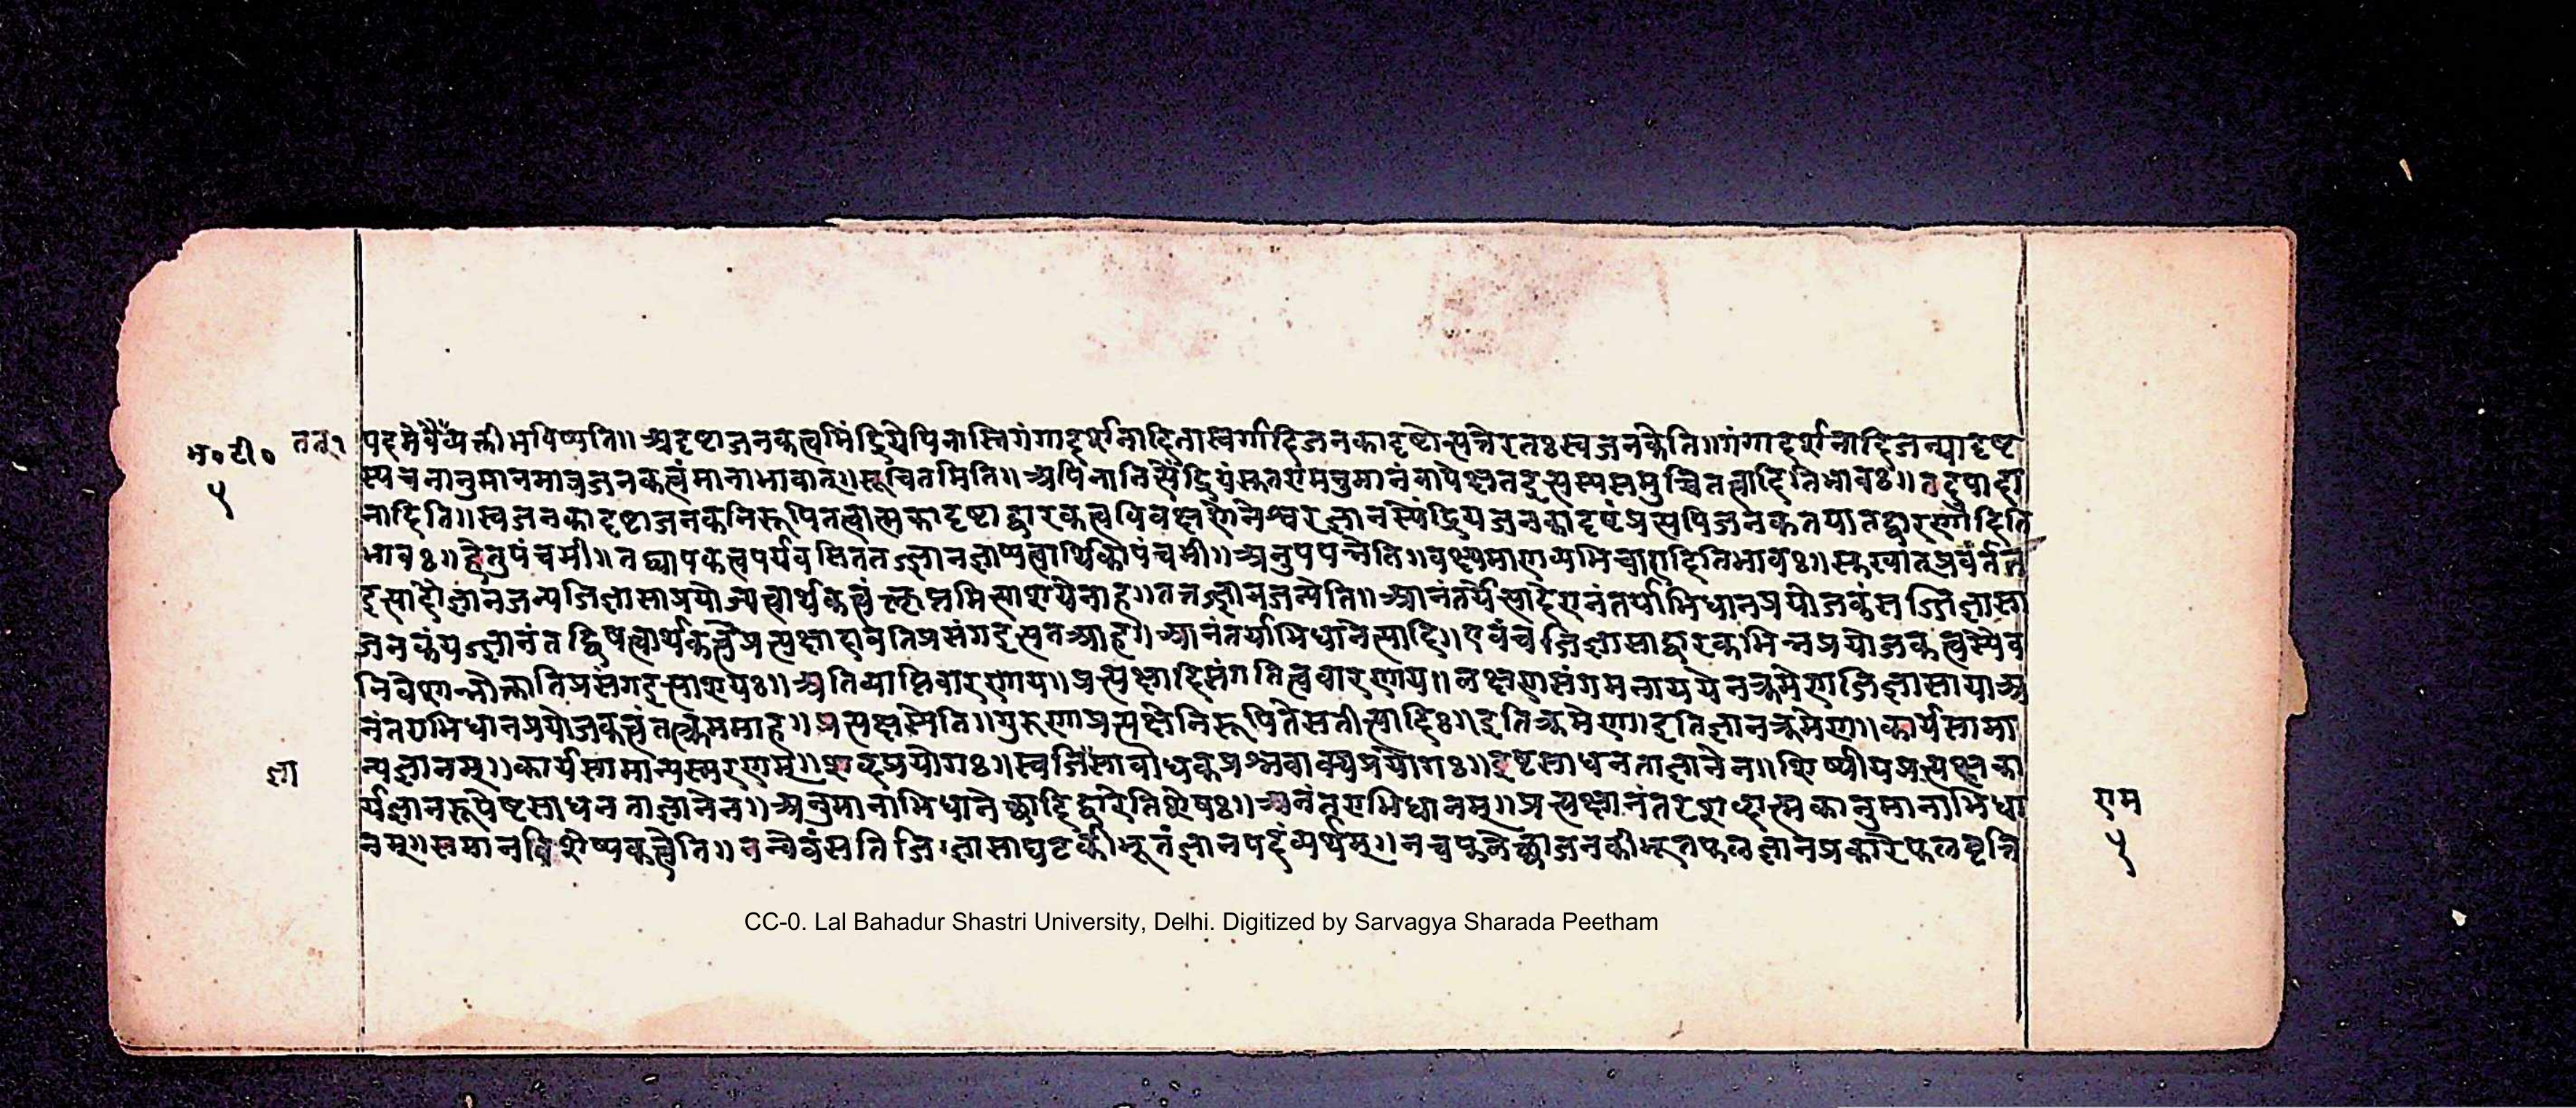 भ० टी० ततु १ पदमेवैय्यर्त्तीभविष्यति॥ अदृष्टाजनकत्वमिंद्रियेपिनास्तिगंगादर्शनादिनास्वर्गादिजनकादृष्टोत्पत्तेरतःस्वजनकेति॥गंगादर्शनादिजन्यादृष्ट
५ स्यचनानुमानमात्रजनकत्वंमानाभावात्॥सूचितमिति॥अपिनातिस्पेंद्रियं मनुमानंवापेक्ष्यतदुत्तस्यसमुच्चितत्वादितिभावः॥तदुपादा
नादिति॥स्वजनकादृष्टाजनकनिरूपितत्वात्मकादृष्टाद्वारकत्वविवक्षणेनेश्वरज्ञानस्येंद्रियजनकादृष्टंप्रत्यपिजनकतयातद्वारणादिति
भावः॥हेतुपंचमी॥तद्व्यापकत्वपर्यवसिततज्ज्ञानज्ञाप्यत्वार्थिकापंचमी॥अनुपपन्नेति॥वक्ष्यमाणव्यभिचारादितिभावः॥ प्रवर्तत
इत्यादौज्ञानजन्यजिज्ञासाप्रयोज्यत्वार्थकत्वं मित्याशयेनाह॥तत्तज्ज्ञानजन्येति॥आनंतर्येत्वादेरनंतर्याभिधानप्रयोजकंसज्जिज्ञासा
जनकंयज्ज्ञानंतद्विषत्वार्थकत्वेप्रत्यक्षादावतिप्रसंगइत्यतआह॥आनंतर्याभिधानेत्यादि॥एवंचजिज्ञासाद्वारकभिन्नप्रयोजकत्वस्यैव
निवेशान्नोक्तातिप्रसंगइत्याशयः॥अतिव्याप्तिवारणाय॥प्रत्यक्षादिसंगतित्ववारणाय॥लक्षणसंगमनाययेनक्रमेणजिज्ञासायाअ
नंतराभिधानप्रयोजकत्वंतत्क्रममाह॥प्रत्यक्षस्येति॥गुरुणाप्रत्यक्षेनिरूपितेसतीत्यादिः॥इतिक्रमेण॥इतिज्ञानक्रमेण॥कार्यसामा
ज्ञा न्यज्ञानम्॥कार्यसामान्यस्मरणम्॥शब्दप्रयोगः॥स्वजिसावोधकप्रश्नवाक्यप्रयोगः॥इष्टसाधनताज्ञानेन॥शिष्यीयप्रत्यक्षका
र्यज्ञानरूपेष्टसाधनताज्ञानेन॥अनुमानाभिधानेच्छादिद्वारेतिशेषः॥अनंतराभिधानम्॥प्रत्यक्षानंतरशब्दात्मकानुमानाभिधा राम
नम्॥समानविशेष्यकत्वेति॥नन्वेवंसतिजिज्ञासाघटकीभूतंज्ञानपदंव्यर्थम्॥नचफलेच्छाजनकीभूतफलज्ञानप्रकारेफलवृत्ति ५
CC-0. Lal Bahadur Shastri University, Delhi. Digitized by Sarvagya Sharada Peetham